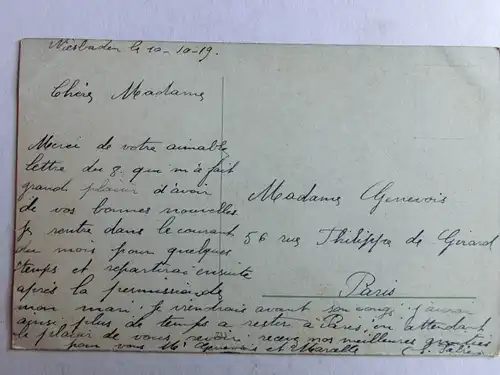 Wiesbaden le 10-10-19.
Chère Madame
Merci de votre aimable
lettre du 8. qui m'a fait
grand plaisir d'avoir
de vos bonnes nouvelles
je rentre dans le courant
du mois pour quelques
temps et repartirai ensuite
après la permission de
mon mari. je viendrais avant son congé j'aurai
ainsi plus de temps a rester à Paris, en attendant
le plaisir de vous revoir recevez nos meilleures
pour vous Mr Genevois et
Madame Genevois
56 rue Philippe de Girard
Paris